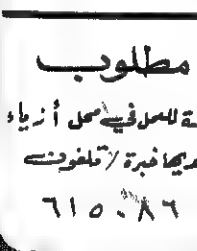 مطلوب
ة للعمل في محل أزياء
ديها خبرة / تلفون
٦١٥٠٨٦